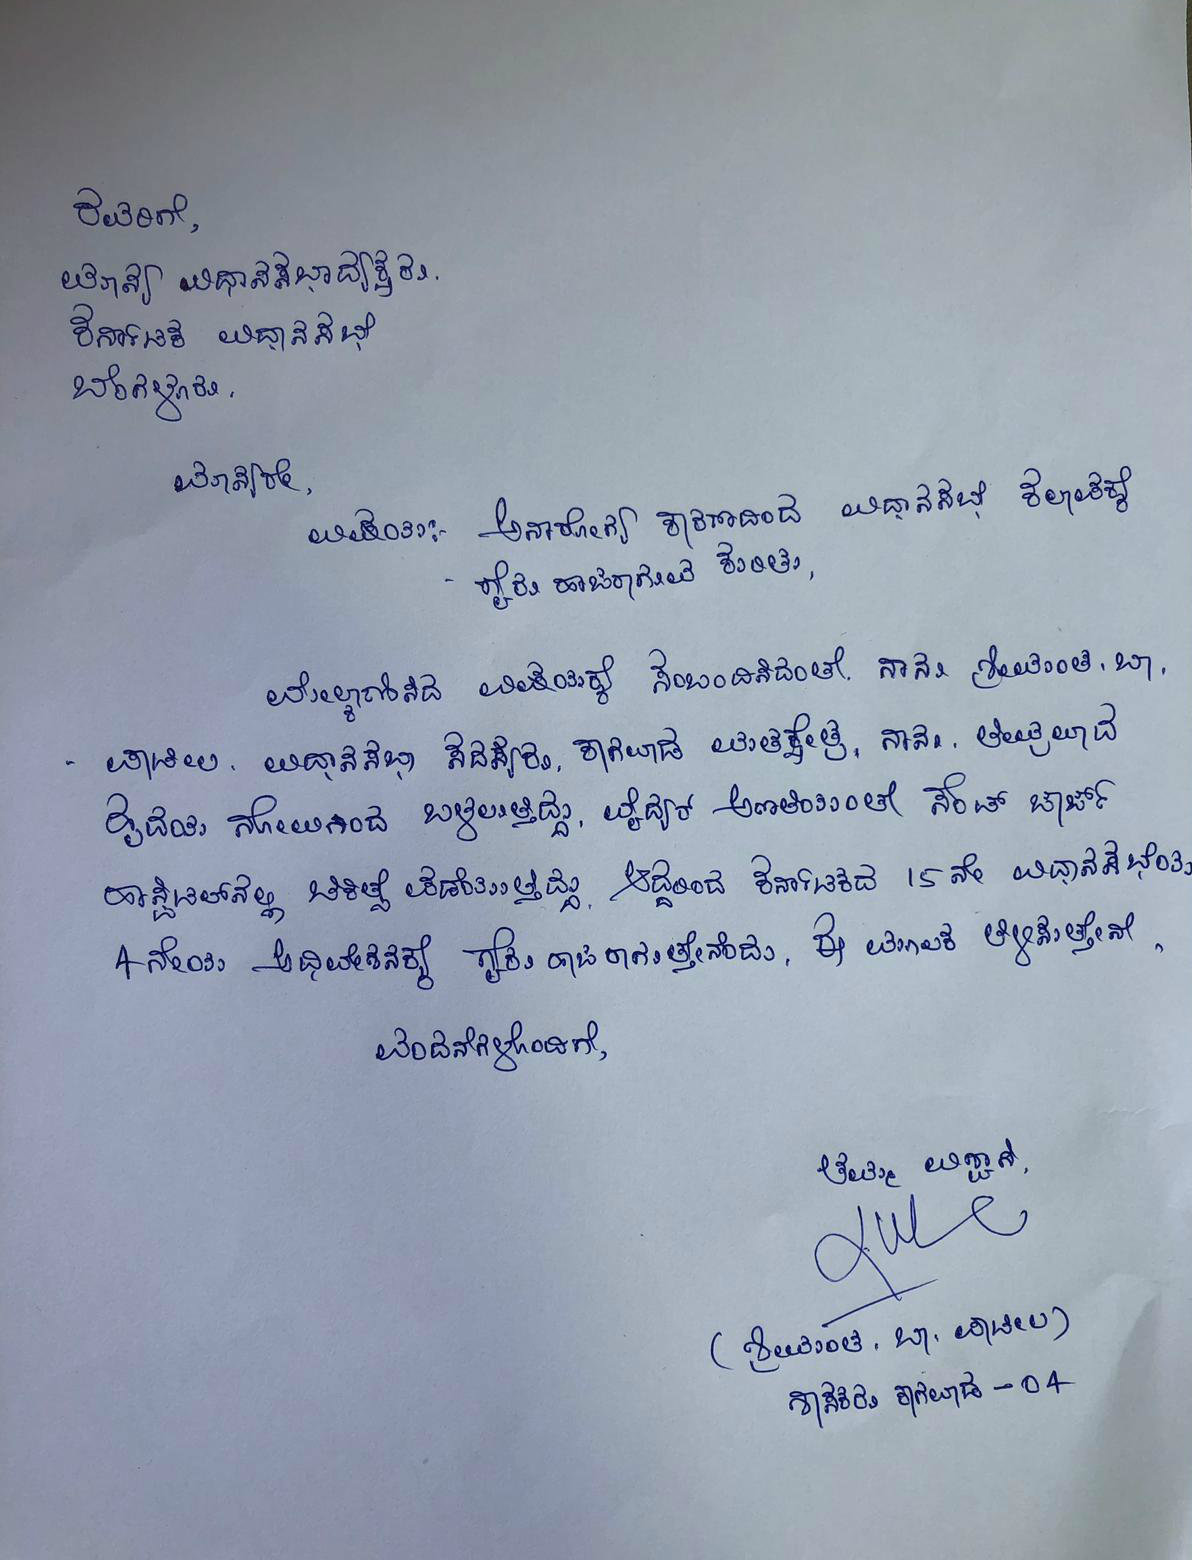 ರವರಿಗೆ,
ಮಾನ್ಯ ವಿಧಾನಸಭಾದ್ಯಕ್ಷರು.
ಕರ್ನಾಟಕ ವಿಧಾನಸಭೆ
ಬೆಂಗಳೂರು.
ಮಾನ್ಯರೇ,
ವಿಷಯ:- ಅನಾರೋಗ್ಯ ಕಾರಣದಿಂದ ವಿಧಾನಸಭೆ ಕಲಾಪಕ್ಕೆ
- ಗೈರು ಹಾಜರಾಗುವ ಕುರಿತು,
ಮೇಲ್ಕಾಣಿಸಿದ ವಿಷಯಕ್ಕೆ ಸಂಬಂದಿಸಿದಂತೆ. ನಾನು ಶ್ರೀಮಂತ. ಬಾ.
- ಪಾಟೀಲ. ವಿಧಾನಸಭಾ ಸದಸ್ಯರು, ಕಾಗವಾಡ ಮತಕ್ಷೇತ್ರ, ನಾನು. ತೀವ್ರವಾದ
ಹೃದಯ ನೋವಿನಿಂದ ಬಳಲುತ್ತಿದ್ದು, ವೈದ್ಯರ ಅಣತಿಯಂತೆ ಸೆಂಟ್ ಜಾರ್ಜ್
ಹಾಸ್ಪಿಟಲ್‌ನಲ್ಲಿ ಚಿಕಿತ್ಸೆ ಪಡೆಯುತ್ತಿದ್ದು, ಆದ್ದರಿಂದ ಕರ್ನಾಟಕದ 15 ನೇ ವಿಧಾನಸಭೆಯ
4 ನೇಯ ಅಧಿವೇಶನಕ್ಕೆ ಗೈರು ಹಾಜರಾಗುತ್ತೇನೆಂದು, ಈ ಮೂಲಕ ತಿಳಿಸುತ್ತೇನೆ,
ವಂದನೆಗಳೊಂದಿಗೆ,
ತಮ್ಮ ವಿಶ್ವಾಸಿ,
(ಶ್ರೀಮಂತ. ಬಾ. ಪಾಟೀಲ)
ಶಾಸಕರು ಕಾಗವಾಡ - 04